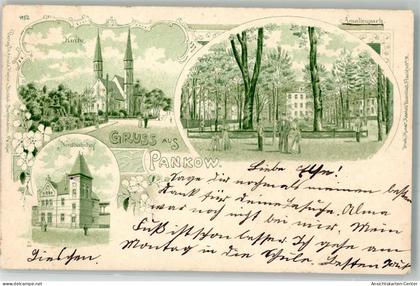 Kirche
Amalienpark
GRUSS AUS
PANKOW.
Nordbahnhof
Liebe Else!
Sage Dir nochmals meinen besten
Dank für Deine Besuche. Alma
war noch nicht bei mir. Mein
Fuß ist schon besser. Ich gehe am
Montag in die Schule. Besten Gruß
Lieschen
Ansichtskarten-Center